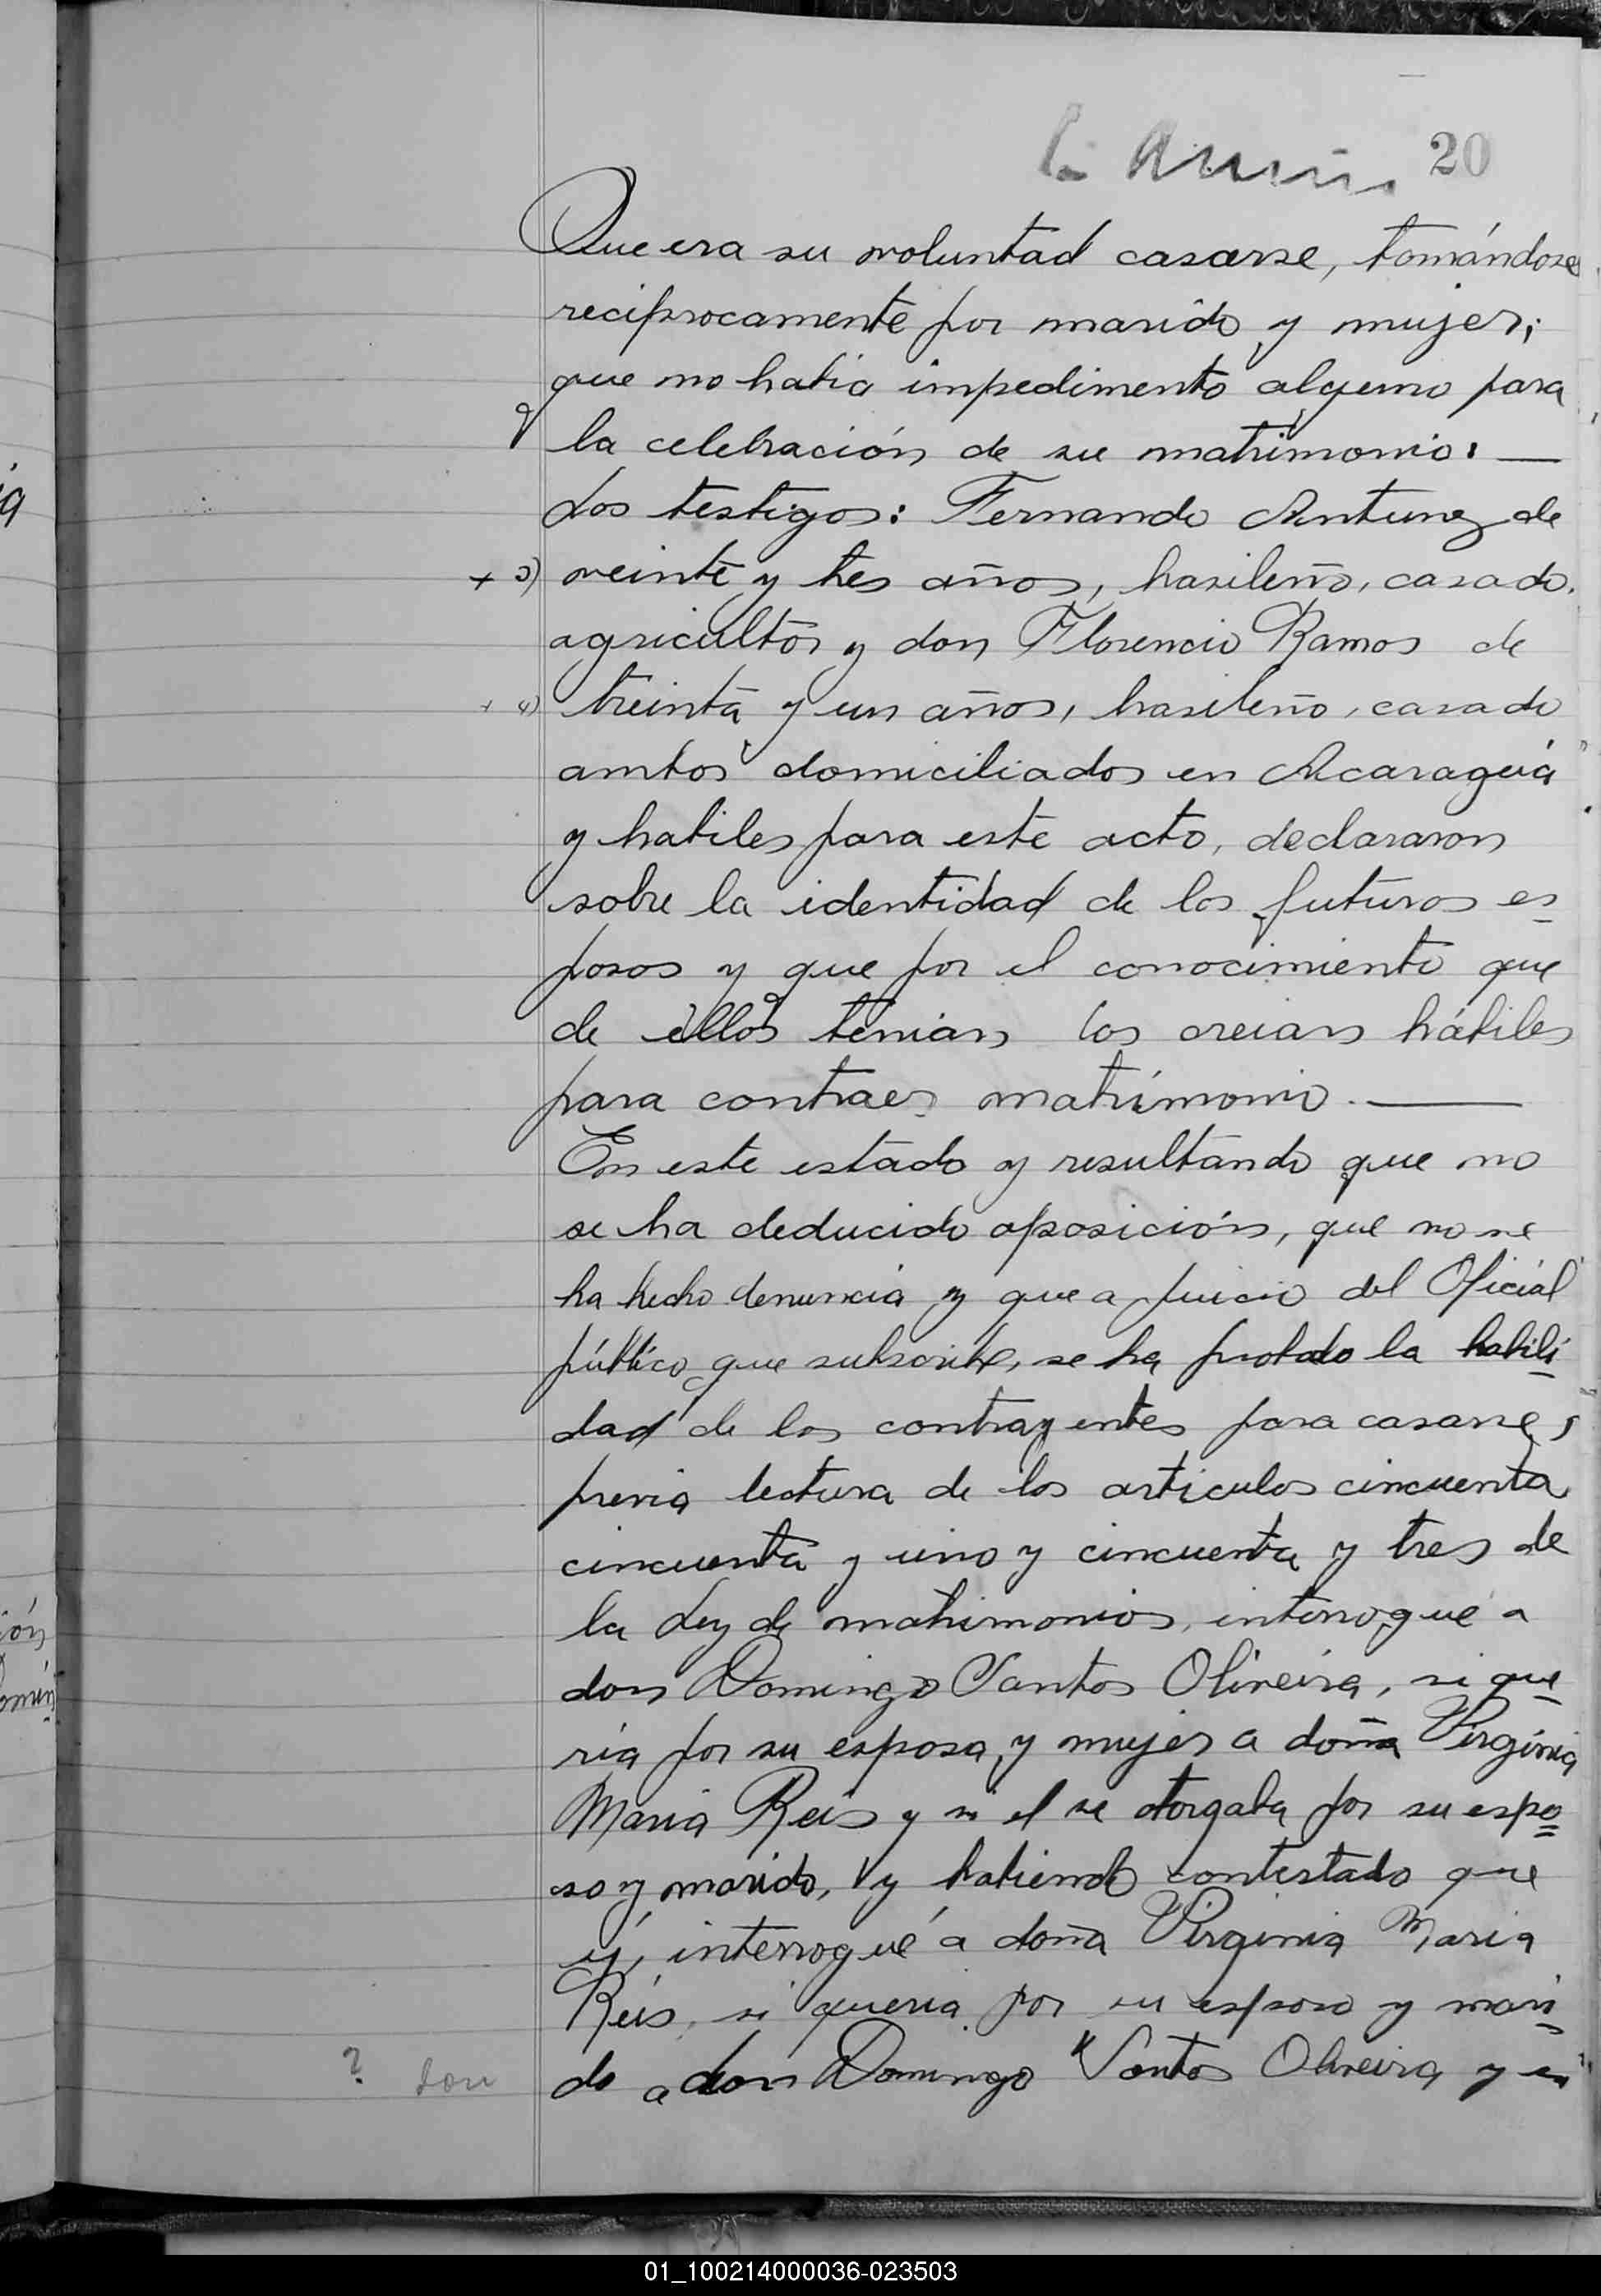 20
Que era su voluntad casarse, tomándose
recíprocamente por marido y mujer;
que no habia impedimento alguno para
la celebración de su matrimonio: —
Los testigos: Fernando Antunez de
+ 3) veinte y tres años, brasileño, casado,
agricultor y don Florencio Ramos de
+ 4) treinta y un años, brasileño, casado
ambos domiciliados en Acaraguá
y habiles para este acto, declararon
sobre la identidad de los futuros es
posos y que por el conocimiento que
de ellos tenian los creian hábiles
para contraer matrimonio. —
En este estado y resultando que no
se ha deducido oposición, que no se
ha hecho denuncia y que a juicio del Oficial
público que subscribe, se ha probado la habili
dad de los contrayentes para casarse,
previa lectura de los articulos cincuenta
cincuenta y uno y cincuenta y tres de
la Ley de matrimonios, interrogué a
don Domingo Santos Oliveira, si que
ria por su esposa y mujer a doña Virginia
Maria Reis y si el se otorgaba por su espo
so y marido, y habiendo contestado que
sí, interrogué a doña Virginia Maria
Reis, si queria por su esposo y mari
? don do a don Domingo Santos Oliveira y en
01_100214000036-023503